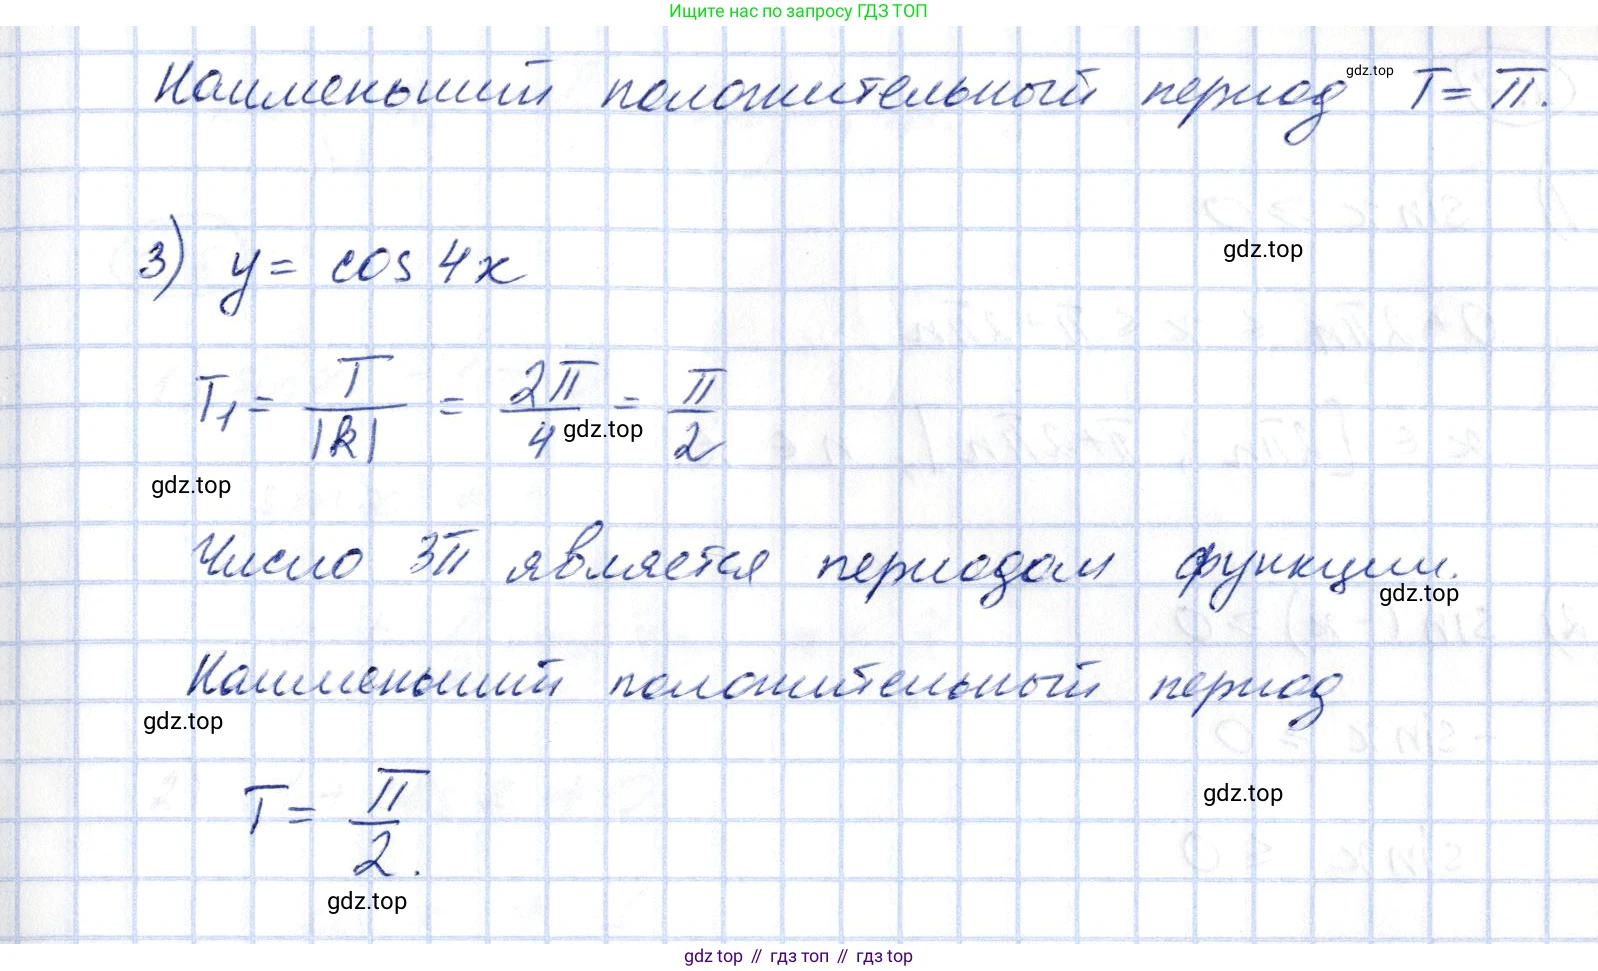 Ищите нас по запросу ГДЗ ТОП
Наименьший положительный период T = π.
gdz.top
3) y = cos 4x
gdz.top
T₁ = T/|k| = 2π/4 = π/2
gdz.top
gdz.top
Число 3π является периодом функции.
gdz.top
Наименьший положительный период
gdz.top
T = π/2.
gdz.top
gdz.top
gdz top // гдз топ // гдз top